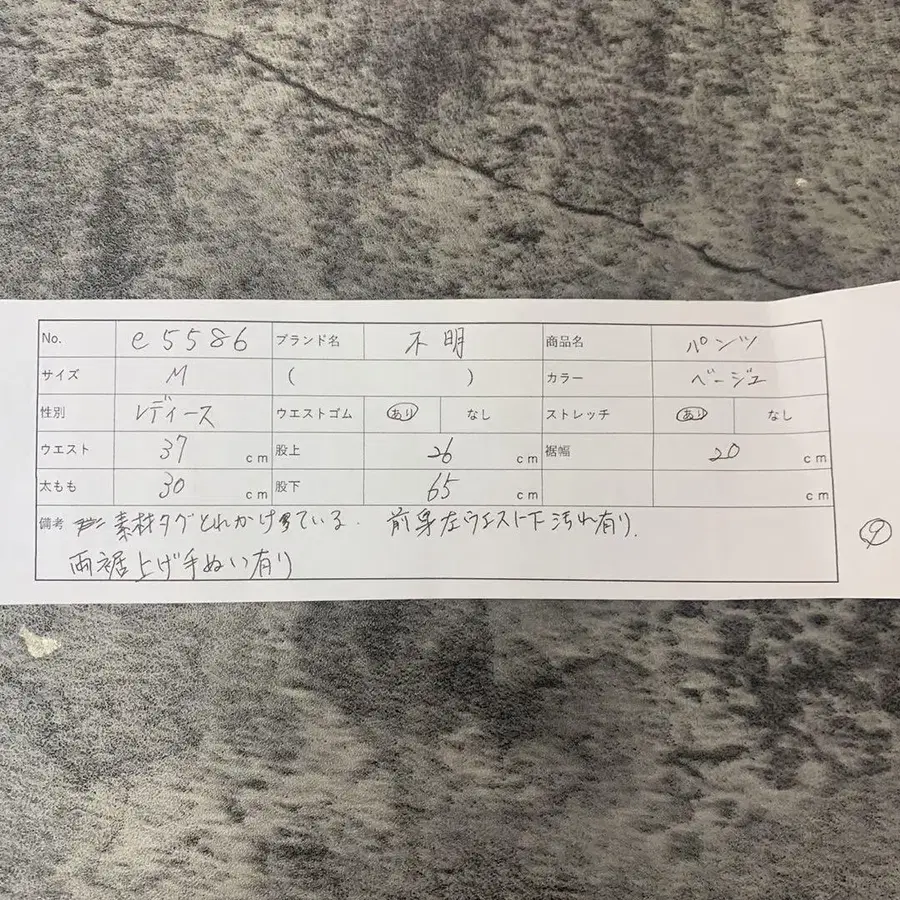 No. e5586 ブランド名 不明 商品名 パンツ
サイズ M ( ) カラー ベージュ
性別 レディース ウエストゴム あり なし ストレッチ あり なし
ウエスト 37 cm 股上 26 cm 裾幅 20 cm
太もも 30 cm 股下 65 cm
備考 素材タグとれかけている. 前身左ウエスト下汚れ有り.
両裾上げ手ぬい有り